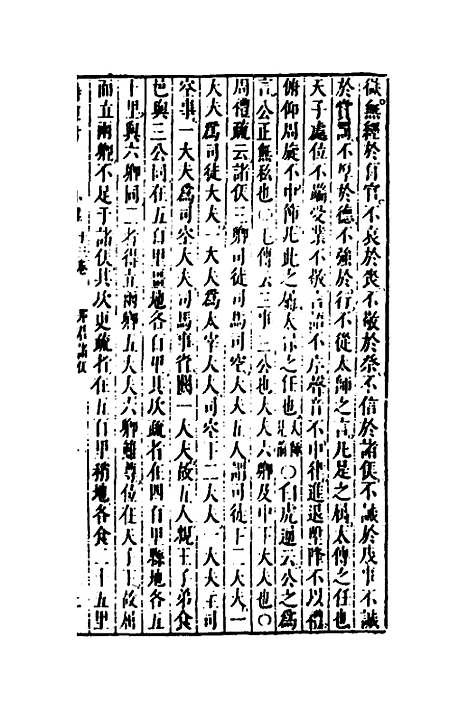 獄無經於百官不哀於喪不敬於祭不信於諸侯不誡於戎事不誠
於賞罰不厚於德不強於行不從太師之言凡是之屬太傅之任也
天子處位不端受業不敬言語不序聲音不中律進退升降不以禮
俯仰周旋不中節凡此之屬太保之任也 〇白虎通云公之爲
言公正無私也〇毛傳云三事三公也大夫六卿及中下大夫也〇
周禮疏云諸侯三卿司徒司馬司空大夫五人謂司徒下二大夫一
大夫爲司徒大夫一大夫爲太宰大夫司空下二大夫一大夫主司
空事一大夫爲司空大夫司馬事省闕一大夫故五人親王子弟食
邑與三公同在五百里畺地各百里其次疏者在四百里縣地各五
十里與六卿同二者得五兩卿五大夫六卿雖尊位在天子下故稱
而五兩卿不足于諸侯其次更疏者在五百里稍地各食二十五里